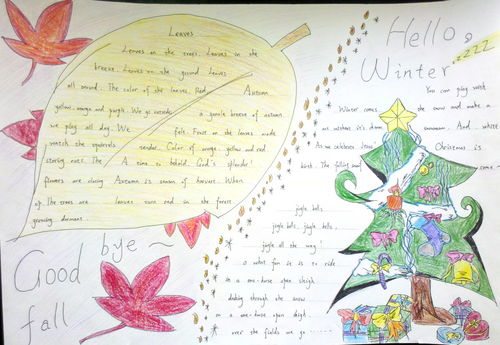 Leaves
Leaves on the trees. Leaves in the
breeze. Leaves on the ground. Leaves
all around. The color of the leaves. Red Autumn
yellow, orange and purple. We go outside a gentle breeze of autumn.
we play all day. We felt. Forest on the leaves made
watch the squirrels tender. Color of orange, yellow and red
storing nuts. The A time to behold God's splendor!
flowers are closing Autumn is season of harvest. When
up. The trees are leaves turn red in the forest
growing dormant.
Good bye ~
fall
Hello,
Winter
zzzz
You can play with
Winter comes the snow and make a
snowman. And
As we celebrate Jesus' Christmas is
birth. The falling come
jingle bells,
jingle bells, jingle bells,
jingle all the way!
o what fun it is to ride
in a one-horse open sleigh
dashing through the snow
in a one-horse open sleigh
over the fields we go ......